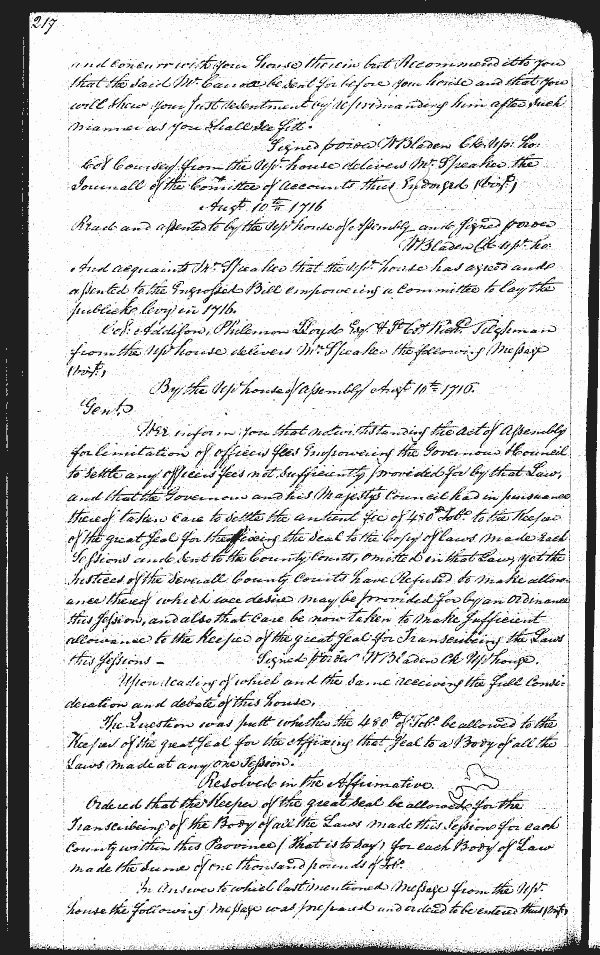 217
and concurr with your house therein but Recommend it to you
that the said Mr. Carroll be sent for before your house and that you
will shew your Just resentment by reprimanding him after such
manner as you shall see fitt.
Signed p order W Bladen Ck. upr. ho.
Col Coursey from the upr. house delivers Mr. Speaker the
Journall of the Comittee of accounts thus Endorsed (vizt.)
Augt. 10th 1716
Read and assented to by the upr. house of Assembly and signed p order
W Bladen Ck upr. ho.
And acquaints Mr. Speaker that the upr. house has agreed and
assented to the Engrossed Bill empowering a Committee to lay the
publick levy in 1716.
Col: Addison, Philemon Lloyd Esqr. & Lt. Col. Richd. Tilghman
from the upr house delivers Mr. Speaker the following Message
(vizt.)
By the upr house of assembly Augt. 10th 1716.
Gent.
Wee inform you that notwithstanding the act of Assembly
for limitation of officers fees Empowering the Governour & Councill
to settle any officers fees not sufficiently provided for by that Law,
and that the Governour and his Majestys Council had in pursuance
thereof taken care to settle the antient fee of 480th. Tobo. to the Keeper
of the great Seal for the affixing the Seal to the Copy of Laws made Each
Sessions and sent to the County Courts, omitted in that Law, yet the
Justices of the severall County Courts have Refused to make allow-
ance thereof which wee desire may be provided for by an Ordinance
this session, and also that Care be now taken to make sufficient
allowance to the Keeper of the great Seal for Transcribeing the Laws
this sessions - Signed p order W Bladen Ck Upr house.
Upon reading of which and the same receiving the full Consi-
deration and debate of this house.
The Question was putt whether the 480th of Tobo. be allowed to the
Keeper of the great Seal for the Affixing that Seal to a Body of all the
Laws made at any one Session.
Resolved in the Affirmative.
Ordered that the Keeper of the great seal be allowed for the
Transcribeing of the Body of all the Laws made this Session for each
County within this Province (That is to say) for each Body of Law
made the Sume of one thousand pounds of Tobo.
In Answer to which last mentioned Message from the Upr.
house the following Message was prepared and ordered to be entered thus (vizt.)